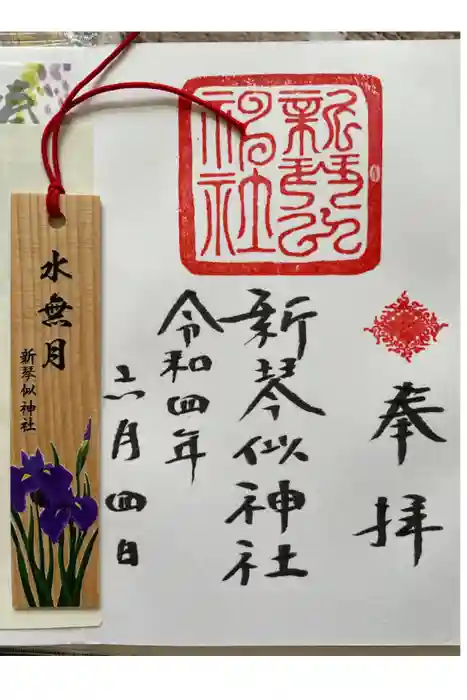 奉拝
新琴似神社
令和四年
六月四日
新琴似
神社
水無月
新琴似神社